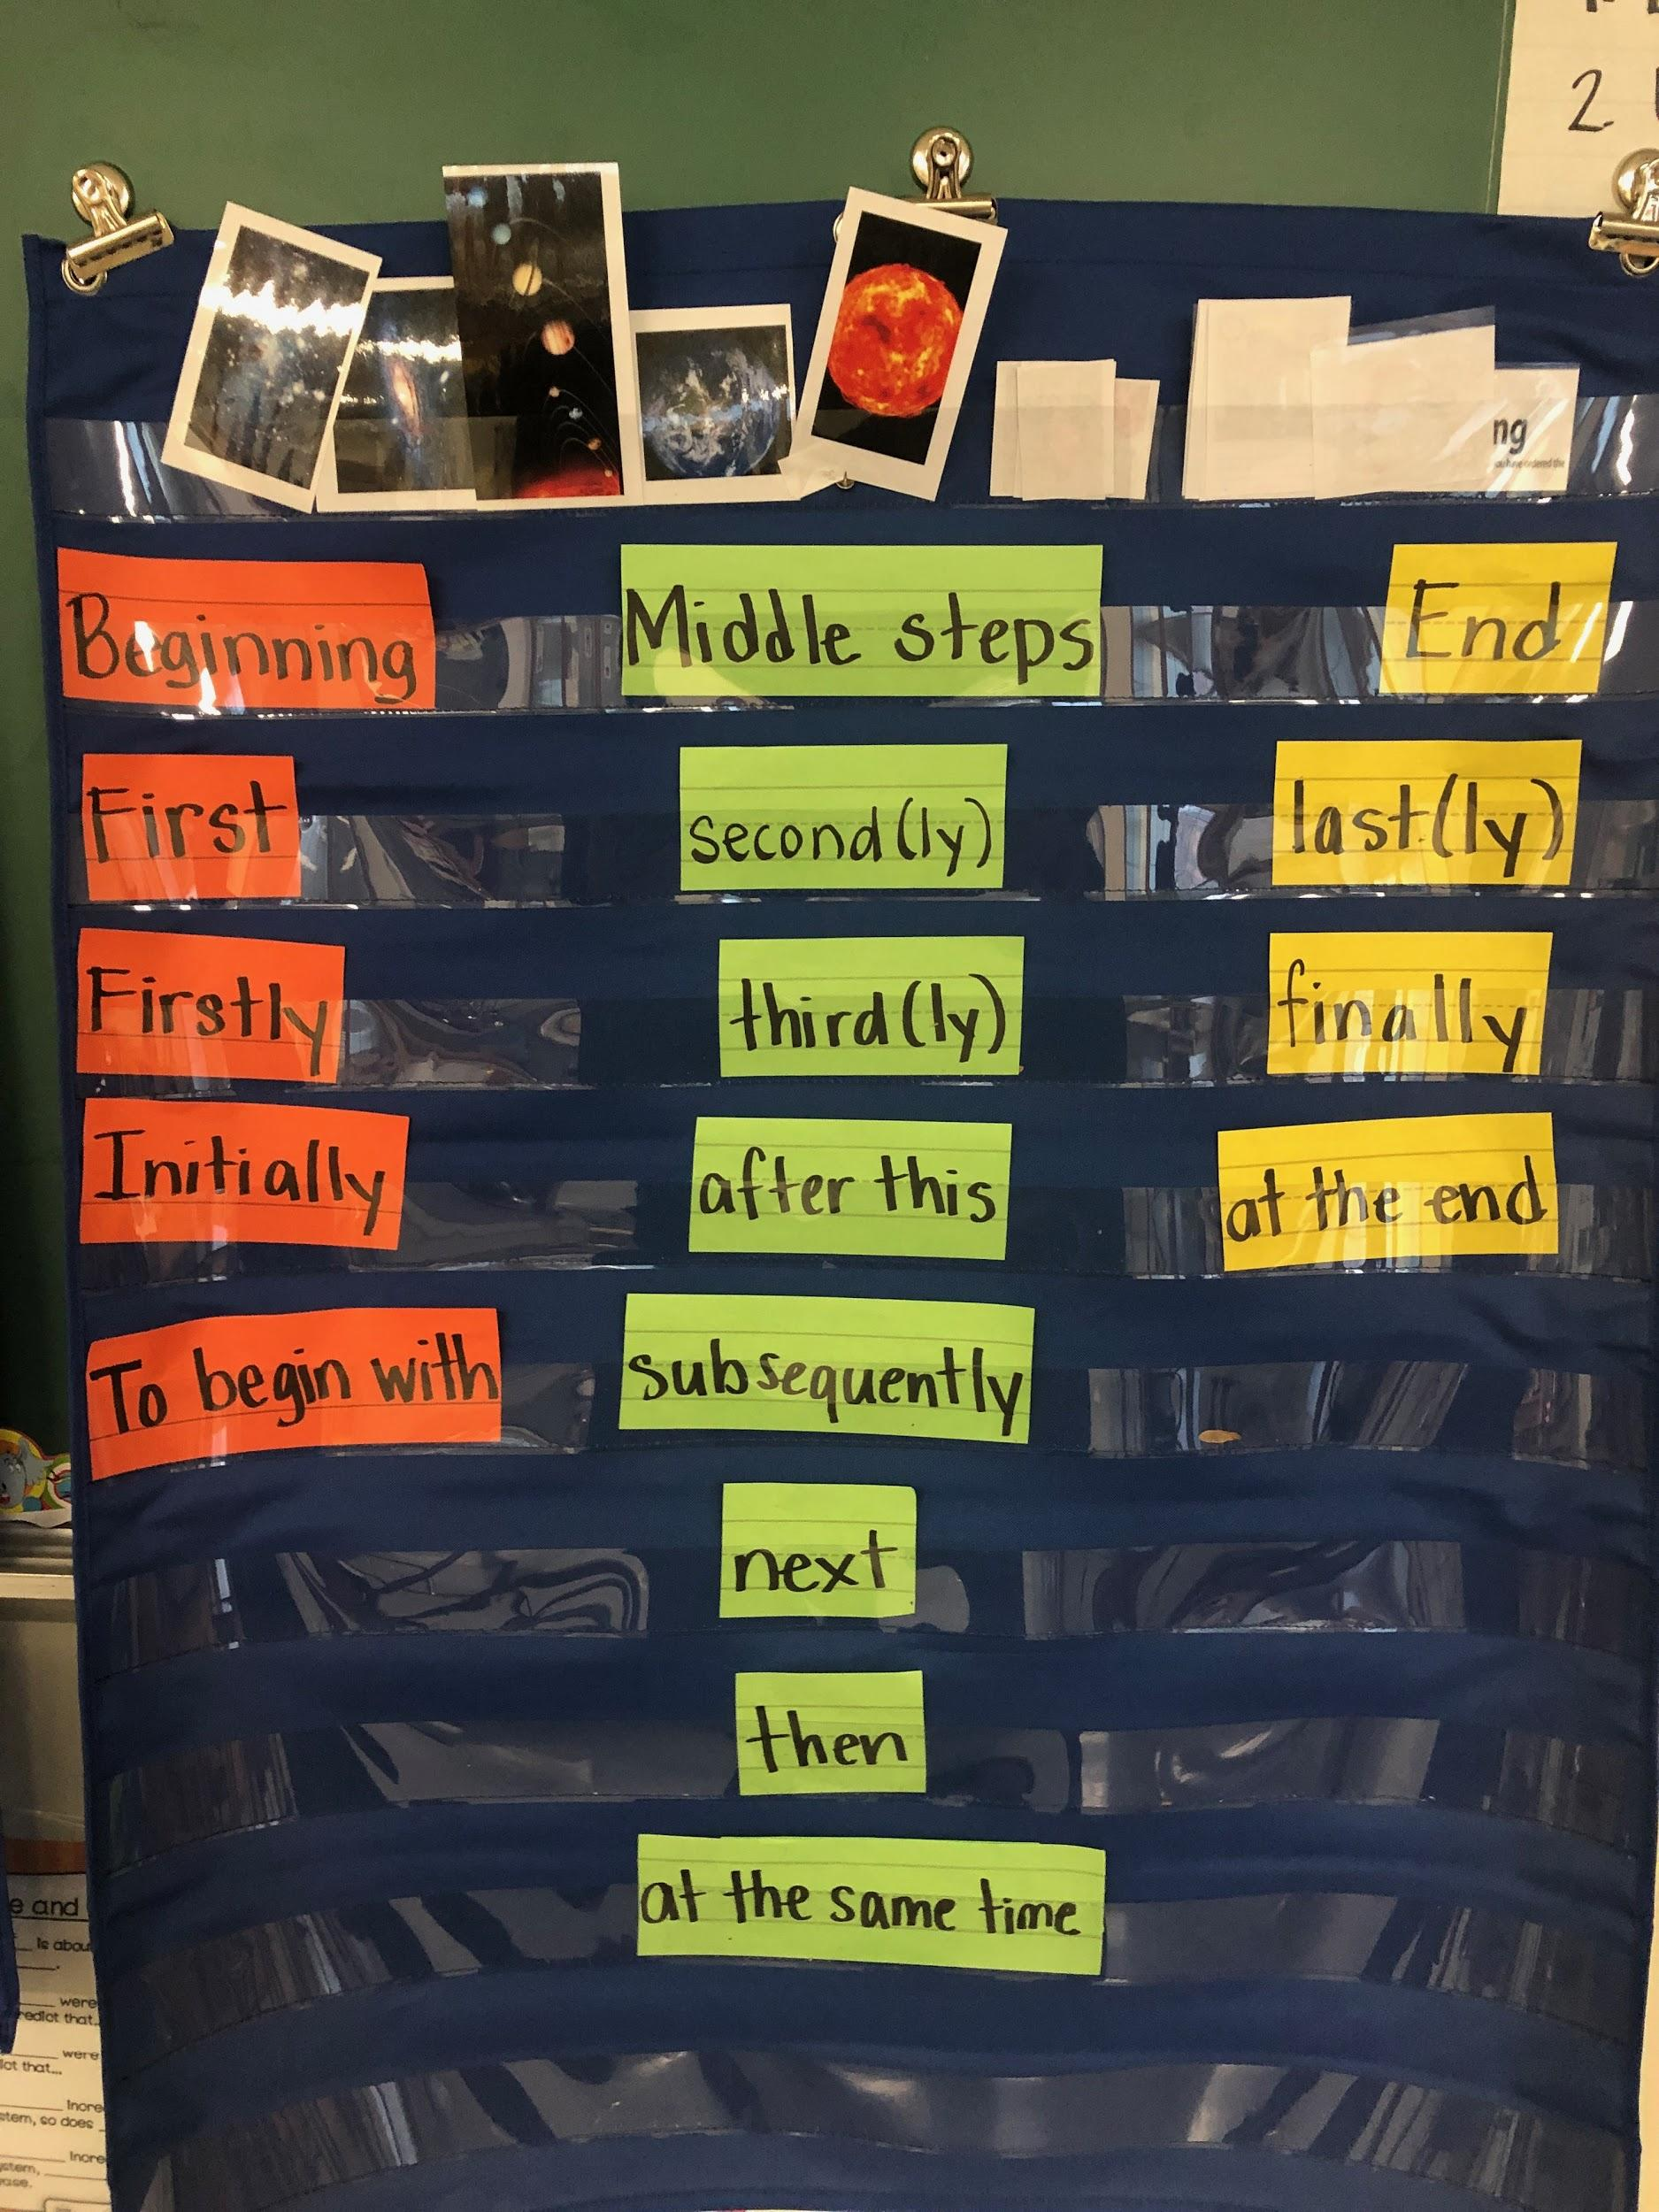 2
ng
you have ordered the
Beginning Middle steps End
First second(ly) last(ly)
Firstly third(ly) finally
Initially after this at the end
To begin with subsequently
next
then
at the same time
e and
is abou
were
redict that...
were
ict that...
Incre
stem, so does
Incre
ystem,
ease.